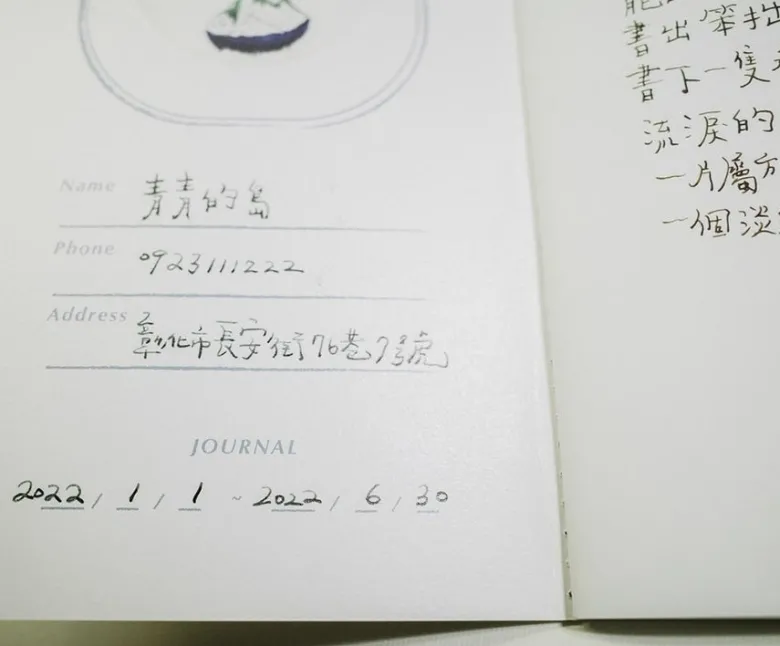 Name 青青的島
Phone 0923111222
Address 彰化市長安街76巷7號
JOURNAL
2022 / 1 / 1 ~ 2022 / 6 / 30
書出笨拙
書下一隻
流淚的
一片屬於
一個淡